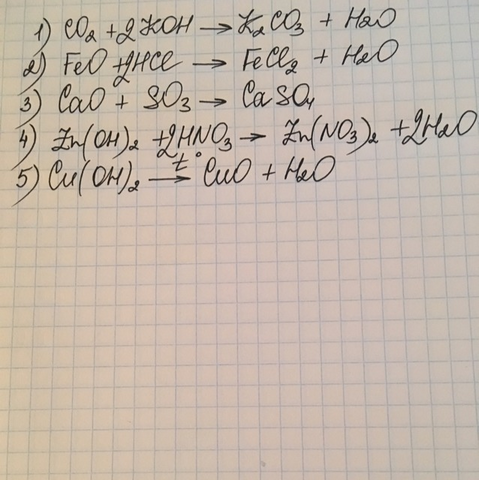 1) CO₂ + 2KOH → K₂CO₃ + H₂O
2) FeO + 2HCl → FeCl₂ + H₂O
3) CaO + SO₃ → CaSO₄
4) Zn(OH)₂ + 2HNO₃ → Zn(NO₃)₂ + 2H₂O
5) Cu(OH)₂ →t° CuO + H₂O